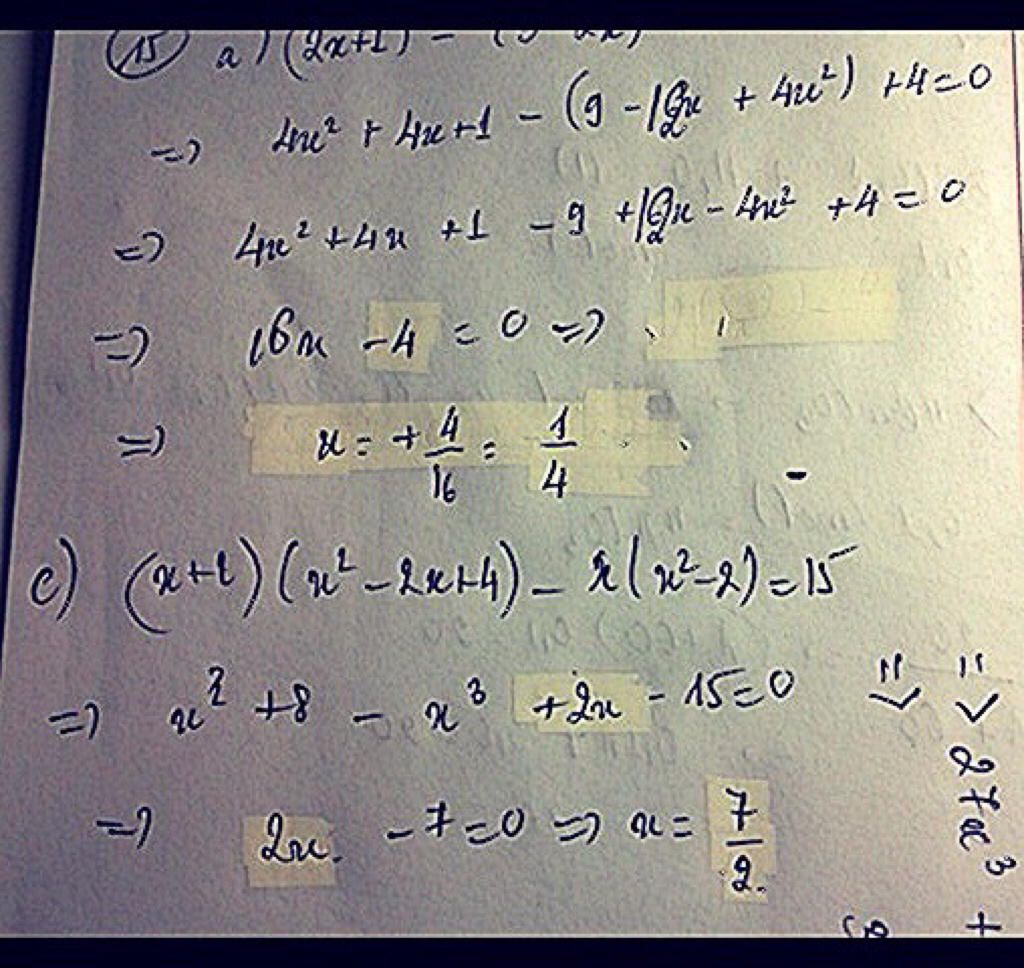 15 a) (2x+1) - (3 - 2x)
=> 4x² + 4x+1 - (9 - 12x + 4x²) +4=0
=> 4x² +4x +1 - 9 +12x - 4x² +4 = 0
=> 16x -4 = 0 =>
=> x = + 4/16 = 1/4
c) (x+2)(x² - 2x+4) - x(x²-2) = 15
=> x³ +8 - x³ +2x - 15=0
=> 2x - 7=0 => x = 7/2
=> 27x³ +